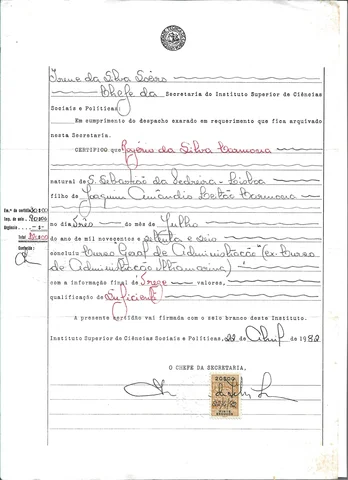 Irene da Silva Soéro
Chefe da Secretaria do Instituto Superior de Ciências
Sociais e Políticas:
Em cumprimento do despacho exarado em requerimento que fica arquivado
nesta Secretaria.
CERTIFICO que Rogério da Silva Carmona
natural de S. Sebastião da Pedreira - Lisboa
filho de Joaquim Leitão Carmona
no dia três do mês de Julho
do ano de mil novecentos e setenta e seis
concluiu Curso Geral de Administração (ex. Curso
de Administração Ultramarina)
com a informação final de treze valores,
qualificação de Suficiente
A presente certidão vai firmada com o selo branco deste Instituto.
Instituto Superior de Ciências Sociais e Políticas, 22 de Abril de 1982
O CHEFE DA SECRETARIA,
20$00